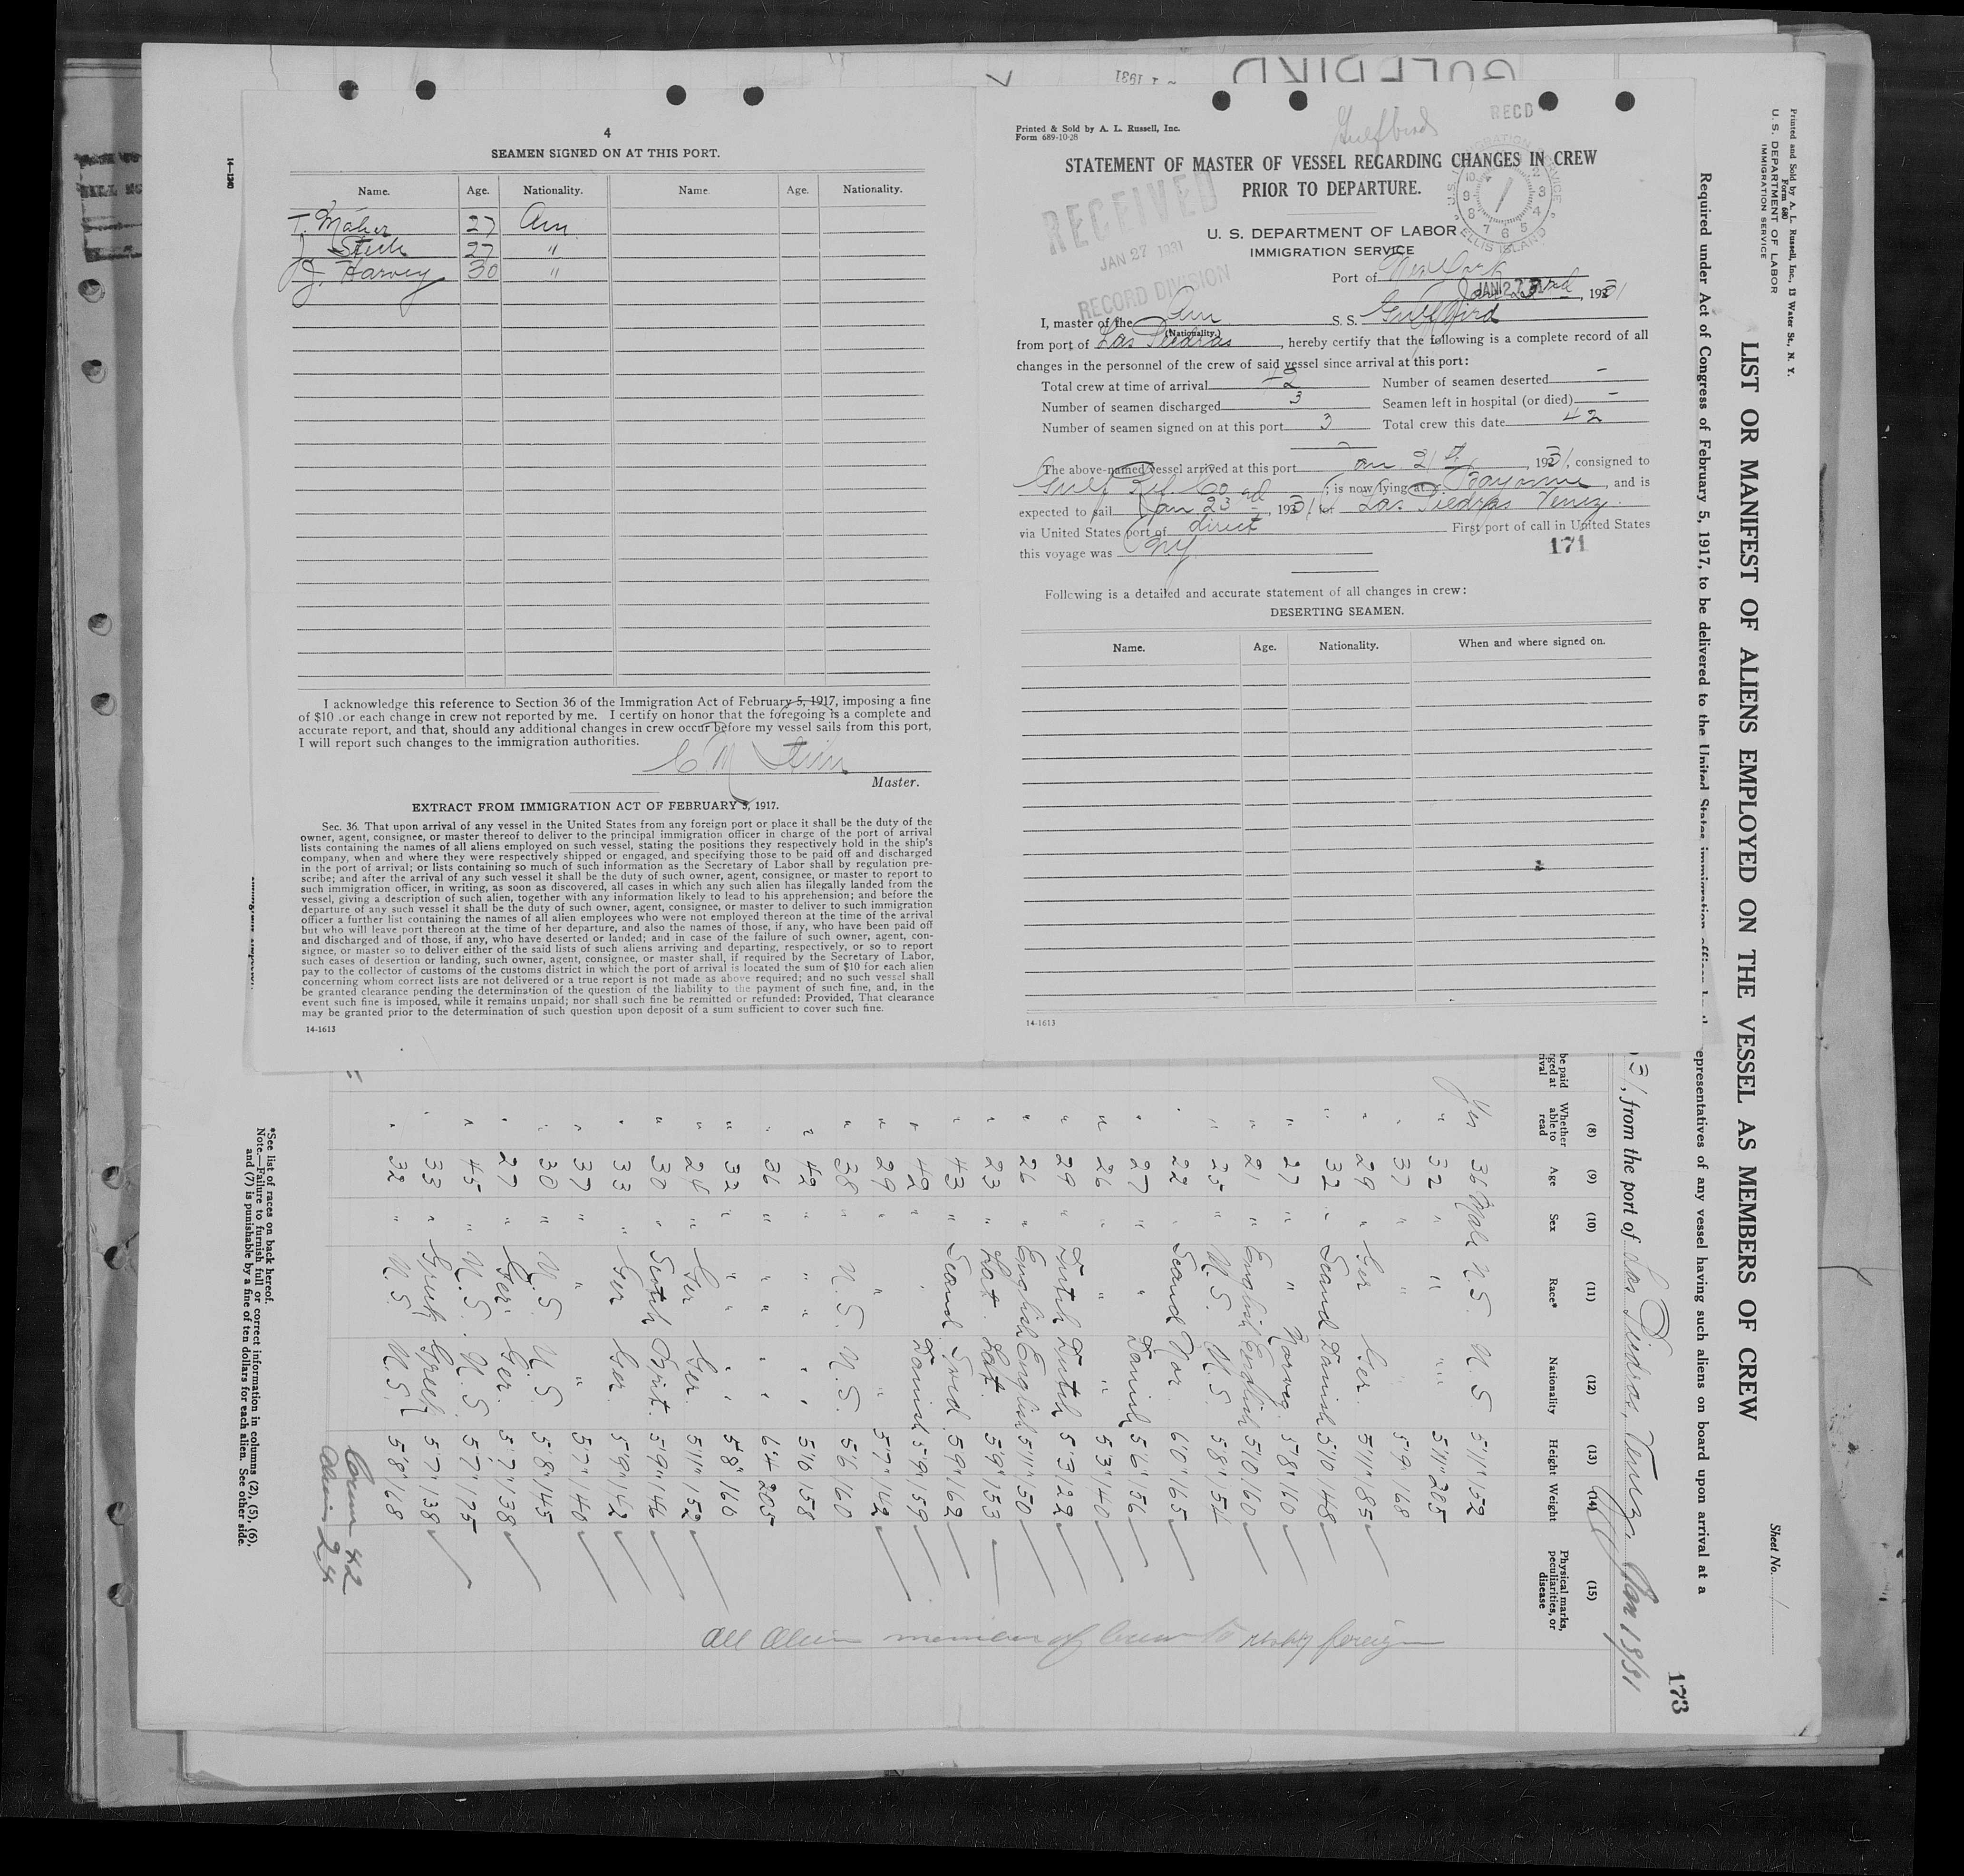 4
SEAMEN SIGNED ON AT THIS PORT.
Name. Age. Nationality. Name. Age. Nationality.
T. Maher 27 Am
J. Steele 27 "
J. Harvey 30 "
I acknowledge this reference to Section 36 of the Immigration Act of February 5, 1917, imposing a fine
of $10 .or each change in crew not reported by me. I certify on honor that the foregoing is a complete and
accurate report, and that, should any additional changes in crew occur before my vessel sails from this port,
I will report such changes to the immigration authorities.
Master.
EXTRACT FROM IMMIGRATION ACT OF FEBRUARY 5, 1917.
Sec. 36. That upon arrival of any vessel in the United States from any foreign port or place it shall be the duty of the
owner, agent, consignee, or master thereof to deliver to the principal immigration officer in charge of the port of arrival
lists containing the names of all aliens employed on such vessel, stating the positions they respectively hold in the ship's
company, when and where they were respectively shipped or engaged, and specifying those to be paid off and discharged
in the port of arrival; or lists containing so much of such information as the Secretary of Labor shall by regulation pre-
scribe; and after the arrival of any such vessel it shall be the duty of such owner, agent, consignee, or master to report to
such immigration officer, in writing, as soon as discovered, all cases in which any such alien has illegally landed from the
vessel, giving a description of such alien, together with any information likely to lead to his apprehension; and before the
departure of any such vessel it shall be the duty of such owner, agent, consignee, or master to deliver to such immigration
officer a further list containing the names of all alien employees who were not employed thereon at the time of the arrival
but who will leave port thereon at the time of her departure, and also the names of those, if any, who have been paid off
and discharged and of those, if any, who have deserted or landed; and in case of the failure of such owner, agent, con-
signee, or master so to deliver either of the said lists of such aliens arriving and departing, respectively, or so to report
such cases of desertion or landing, such owner, agent, consignee, or master shall, if required by the Secretary of Labor,
pay to the collector of customs of the customs district in which the port of arrival is located the sum of $10 for each alien
concerning whom correct lists are not delivered or a true report is not made as above required; and no such vessel shall
be granted clearance pending the determination of the question of the liability to the payment of such fine, and, in the
event such fine is imposed, while it remains unpaid; nor shall such fine be remitted or refunded: Provided, That clearance
may be granted prior to the determination of such question upon deposit of a sum sufficient to cover such fine.
14-1613
GULFBIRD
Printed & Sold by A. L. Russell, Inc.
Form 689-10-28
Gulfbird
RECD
STATEMENT OF MASTER OF VESSEL REGARDING CHANGES IN CREW
PRIOR TO DEPARTURE.
RECEIVED
JAN 27 1931
RECORD DIVISION
ELLIS ISLAND
U. S. DEPARTMENT OF LABOR
IMMIGRATION SERVICE
Port of New York
Jan 23rd, 1931
I, master of the Am S. S. Gulfbird
(Nationality.)
from port of Las Piedras, hereby certify that the following is a complete record of all
changes in the personnel of the crew of said vessel since arrival at this port:
Total crew at time of arrival 42 Number of seamen deserted -
Number of seamen discharged 3 Seamen left in hospital (or died) -
Number of seamen signed on at this port 3 Total crew this date 42
The above-named vessel arrived at this port Jan 21st, 1931, consigned to
Gulf Ref. Co; is now lying at Bayonne, and is
expected to sail Jan 23rd, 1931 for Las Piedras Venez.
via United States port of direct First port of call in United States
this voyage was N.Y.
171
Following is a detailed and accurate statement of all changes in crew:
DESERTING SEAMEN.
Name. Age. Nationality. When and where signed on.
14-1613
Printed and Sold by A. L. Russell, Inc., 13 Water St., N. Y.
Form 680
U. S. DEPARTMENT OF LABOR
IMMIGRATION SERVICE
Sheet No. 1
LIST OR MANIFEST OF ALIENS EMPLOYED ON THE VESSEL AS MEMBERS OF CREW
Required under Act of Congress of February 5, 1917, to be delivered to the United States immigration officer epresentatives of any vessel having such aliens on board upon arrival at a
173
31, from the port of Las Piedras, Venez. Jan 13/31
(8) (9) (10) (11) (12) (13) (14) (15)
Whether able to read Age Sex Race* Nationality Height Weight Physical marks, peculiarities, or disease
Yes 36 Male U.S. U.S. 5'11" 152
" 32 " " " 5'11" 205
" 37 " " " 5'9" 168
" 29 " Ger Ger. 5'11" 185
" 32 " Scand Danish 5'10 148
" 27 " " Norweg. 5'8" 160
" 21 " English English 5'10 160
" 25 " U.S. U.S. 5'8" 154
" 22 " Scand Nor. 6'0" 165
" 27 " " Danish 5'6" 156
" 26 " " " 5'3" 140
" 29 " Dutch Dutch 5'3 122
" 26 " English English 5'11" 150
" 23 " Lat. Lat. 5'9" 153
" 43 " Scand. Swed. 5'9" 162
" 42 " " Danish 5'9" 159
" 29 " " " 5'7" 162
" 38 " U.S. U.S. 5'6 160
" 42 " " " 5'6 158
" 36 " " " 6'4 205
" 32 " " " 5'8" 160
" 24 " Ger Ger. 5'11" 152
" 30 " Scotch Brit. 5'9" 146
" 33 " Ger Ger. 5'9" 142
" 37 " " " 5'7" 140
" 30 " U.S. U.S. 5'8" 145
" 27 " Ger. Ger. 5'7" 138
" 45 " U.S. U.S. 5'7" 175
" 33 " Greek Greek 5'7" 138
" 32 " U.S. U.S. 5'8" 168
Crew 42
Alien 24
All Alien member of Crew to reship foreign
*See list of races on back hereof.
Note.—Failure to furnish full or correct information in columns (2), (5), (6),
and (7) is punishable by a fine of ten dollars for each alien. See other side.